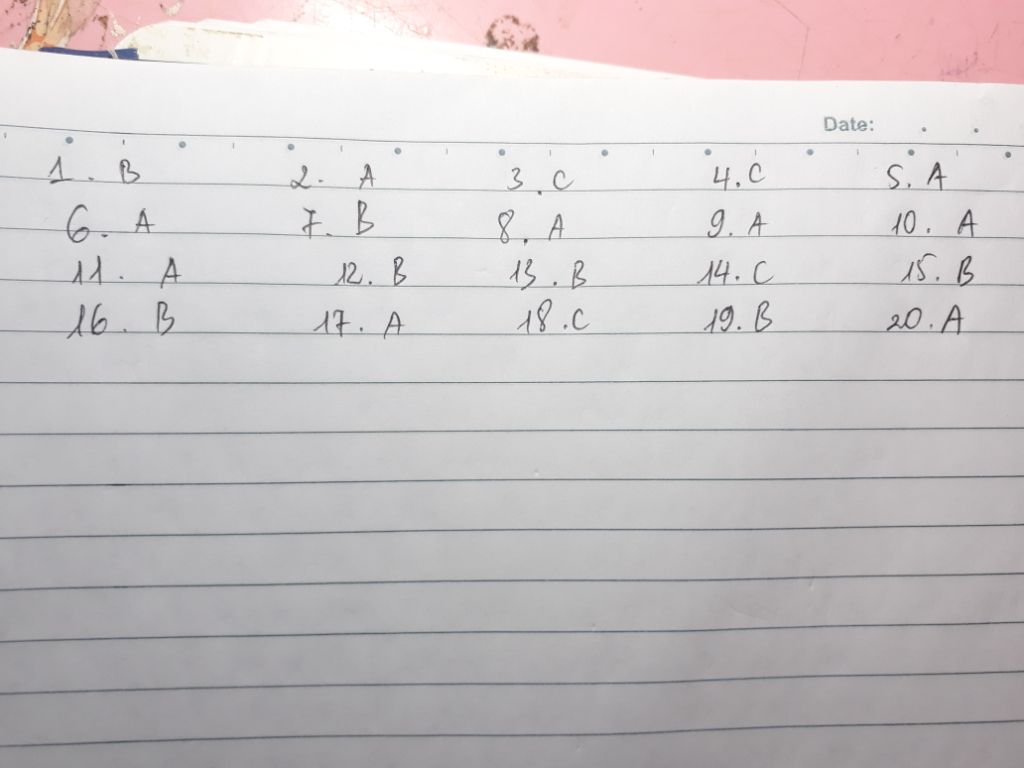 Date:
1. B 2. A 3. C 4. C 5. A
6. A 7. B 8. A 9. A 10. A
11. A 12. B 13. B 14. C 15. B
16. B 17. A 18. C 19. B 20. A